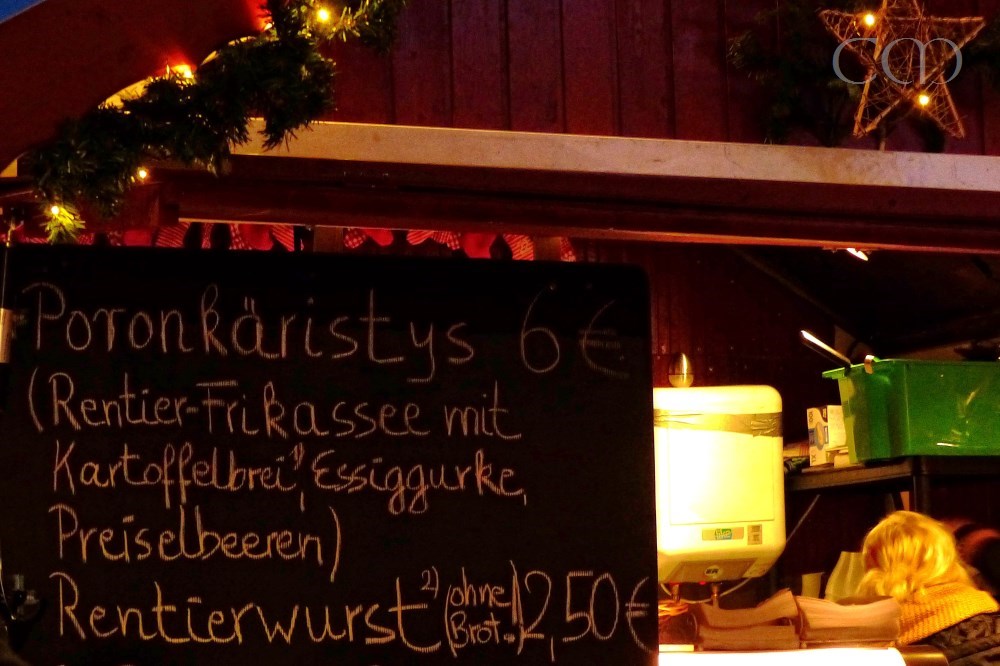 cm
Poronkäristys 6 €
(Rentier-Frikassee mit
Kartoffelbrei¹⁾, Essiggurke,
Preiselbeeren)
Rentierwurst²⁾ (ohne Brot) 2,50€